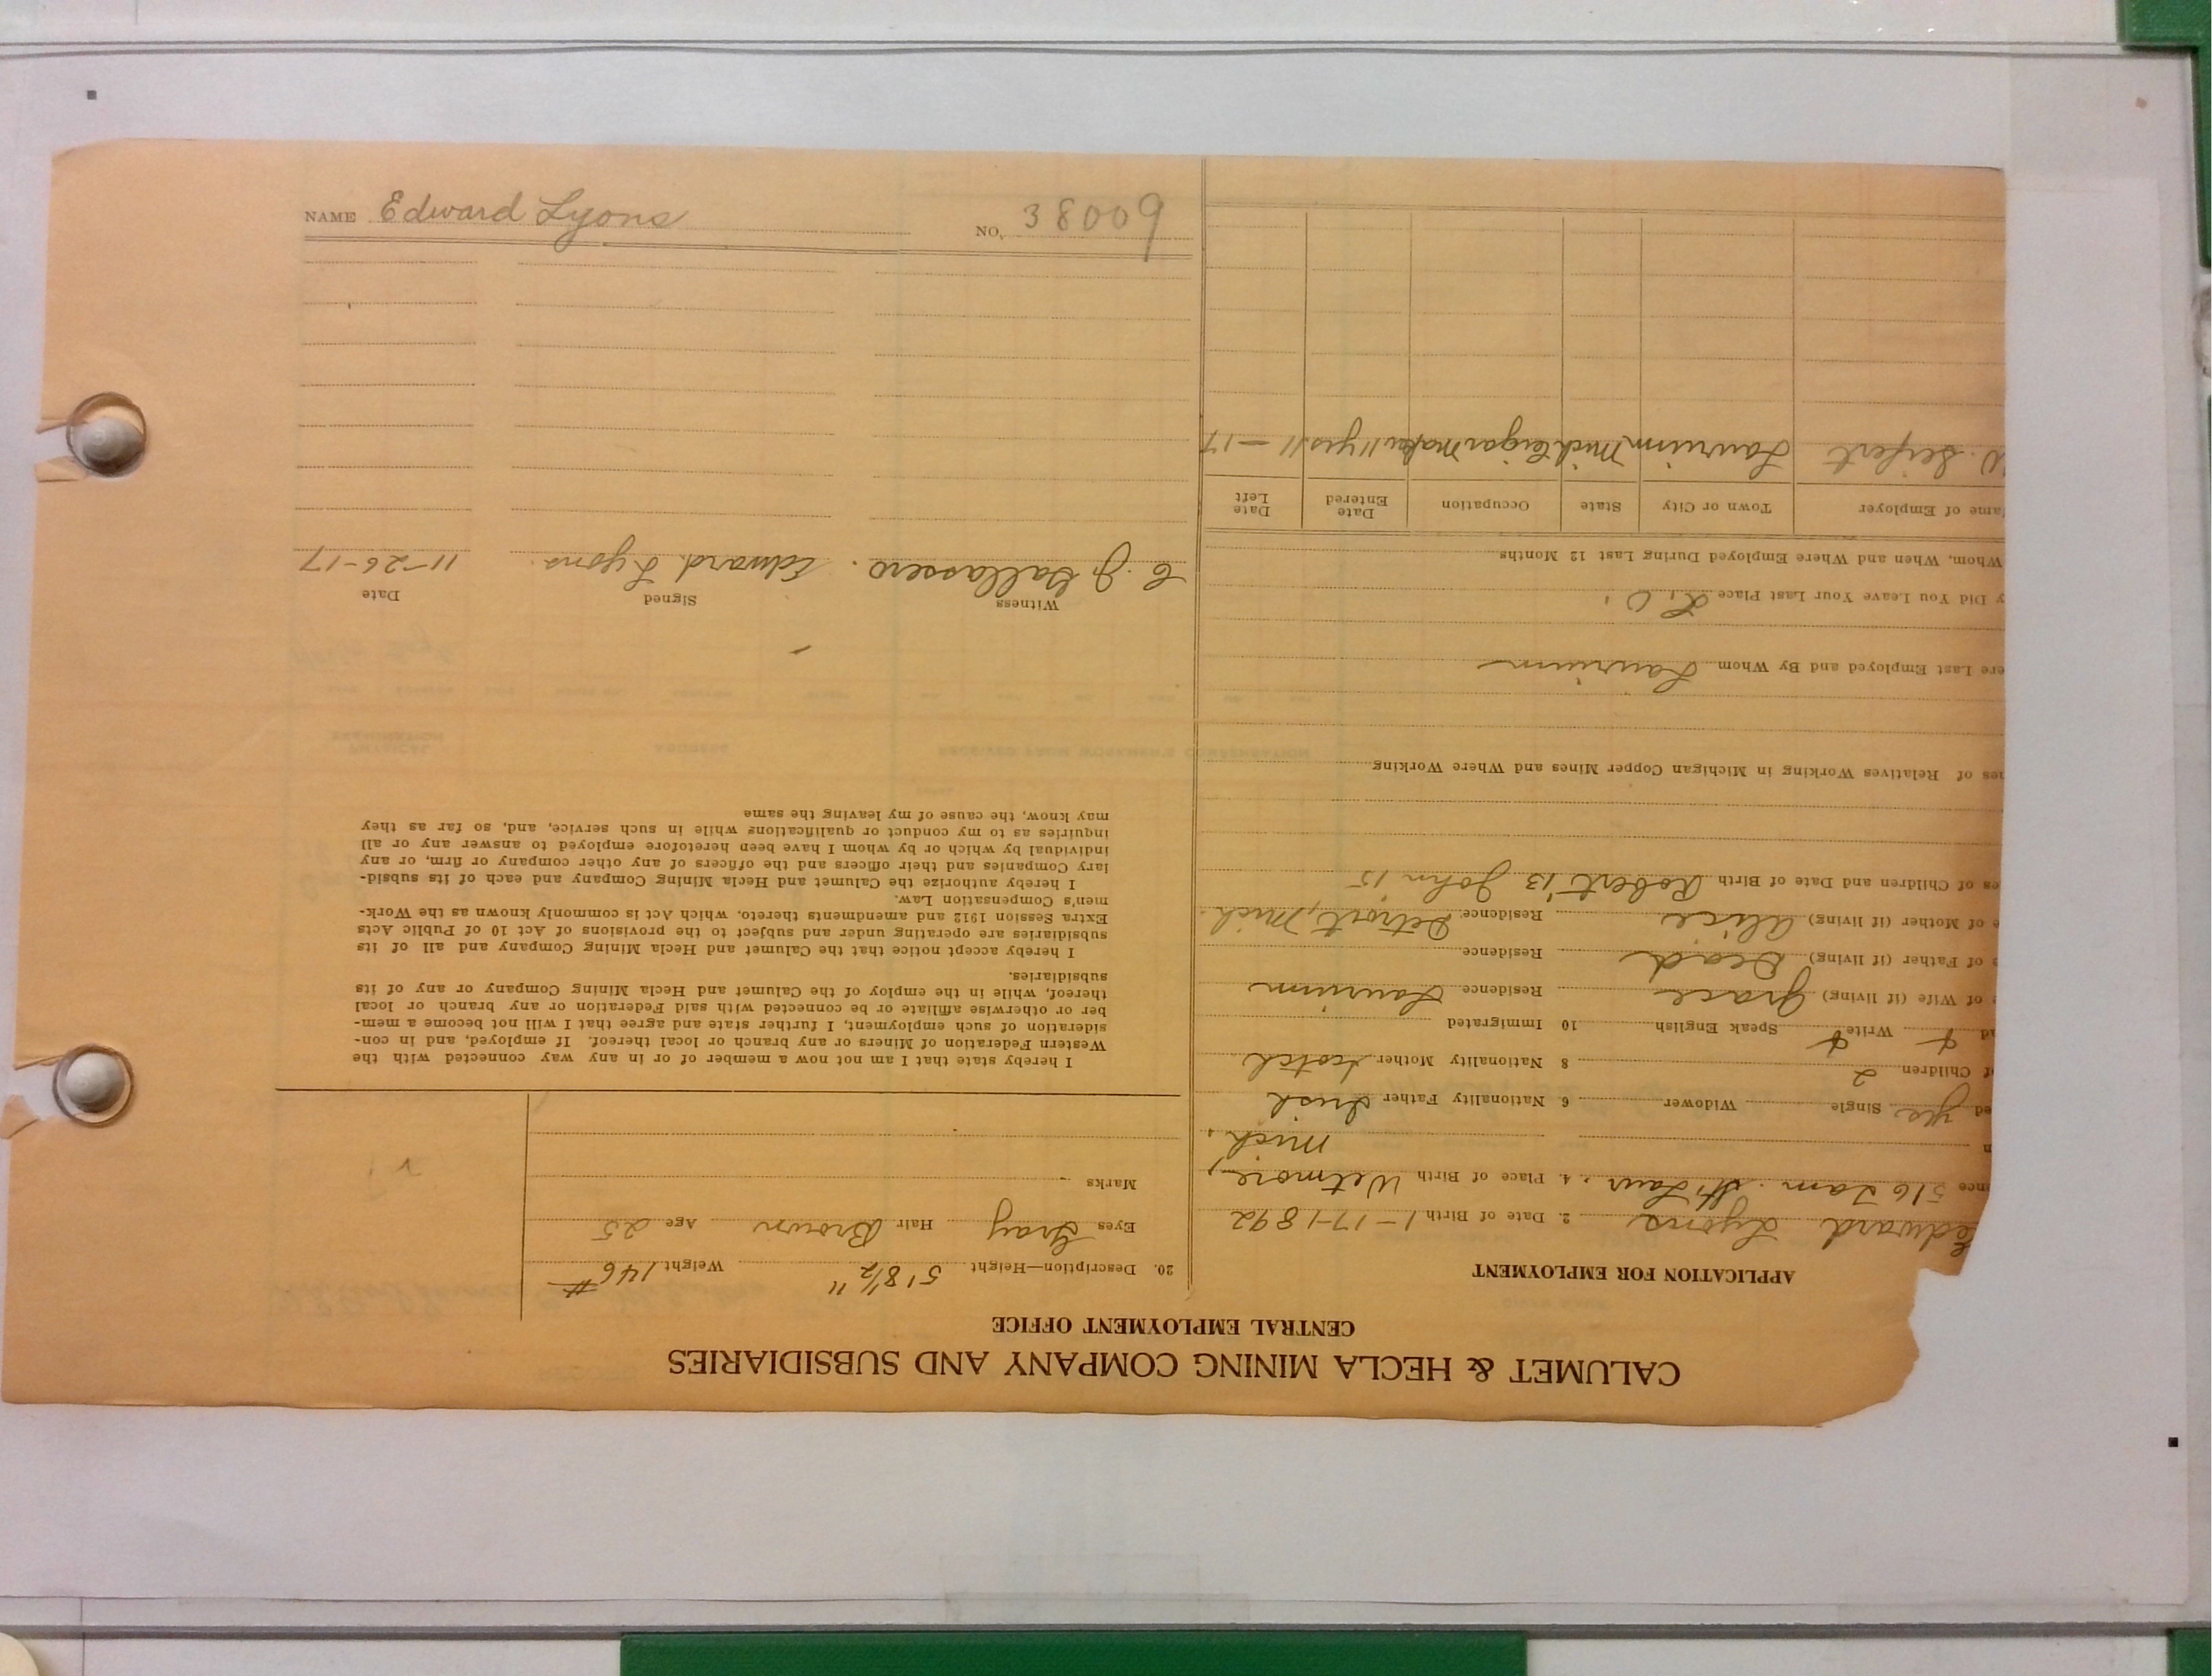 NAME Edward Lyons NO. 38009
CALUMET & HECLA MINING COMPANY AND SUBSIDIARIES
CENTRAL EMPLOYMENT OFFICE
APPLICATION FOR EMPLOYMENT
Edward Lyons 2. Date of Birth 1-17-1892
nce 516 Tam. St. Laur. 4. Place of Birth Wetmore,
n Mich.
ed yes Single Widower 6 Nationality Father Irish
f Children 2 8 Nationality Mother Scotch
ad Write Speak English 10 Immigrated
e of Wife (if living) Grace Residence Laurium
e of Father (if living) Dead Residence
e of Mother (if living) Alice Residence Detroit, Mich.
es of Children and Date of Birth Robert '13 John 15
es of Relatives Working in Michigan Copper Mines and Where Working
ere Last Employed and By Whom Laurium
y Did You Leave Your Last Place
Whom, When and Where Employed During Last 12 Months
ame of Employer Town or City State Occupation Date Entered Date Left
W. Seifert Laurium Mich Ceigar Maker 11 yrs 11-17
20. Description—Height 5' 8½" Weight 146 #
Eyes Gray Hair Brown Age 25
Marks -
I hereby state that I am not now a member of or in any way connected with the
Western Federation of Miners or any branch or local thereof. If employed, and in con-
sideration of such employment, I further state and agree that I will not become a mem-
ber or otherwise affiliate or be connected with said Federation or any branch or local
thereof, while in the employ of the Calumet and Hecla Mining Company or any of its
subsidiaries.
I hereby accept notice that the Calumet and Hecla Mining Company and all of its
subsidiaries are operating under and subject to the provisions of Act 10 of Public Acts
Extra Session 1912 and amendments thereto, which Act is commonly known as the Work-
men's Compensation Law.
I hereby authorize the Calumet and Hecla Mining Company and each of its subsid-
iary Companies and their officers and the officers of any other company or firm, or any
individual by which or by whom I have been heretofore employed to answer any or all
inquiries as to my conduct or qualifications while in such service, and, so far as they
may know, the cause of my leaving the same
Witness Signed Date
C. J. Gallassero. Edward Lyons. 11-26-17